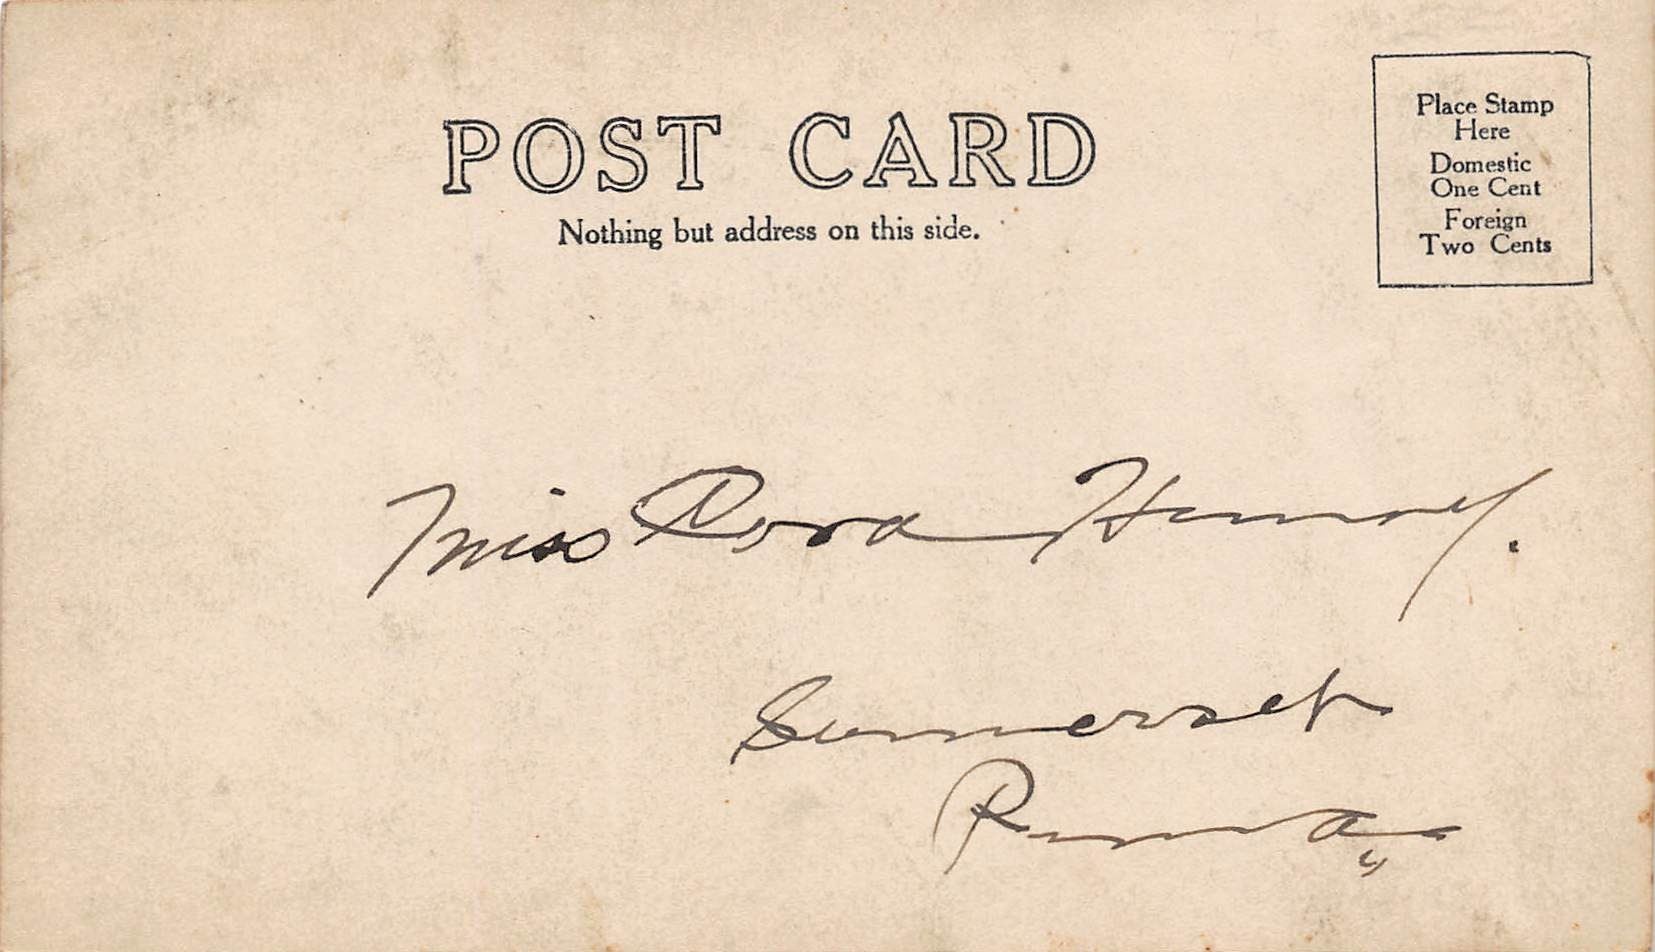 POST CARD
Nothing but address on this side.
Place Stamp
Here
Domestic
One Cent
Foreign
Two Cents
Miss Cora
Somerset
Penna